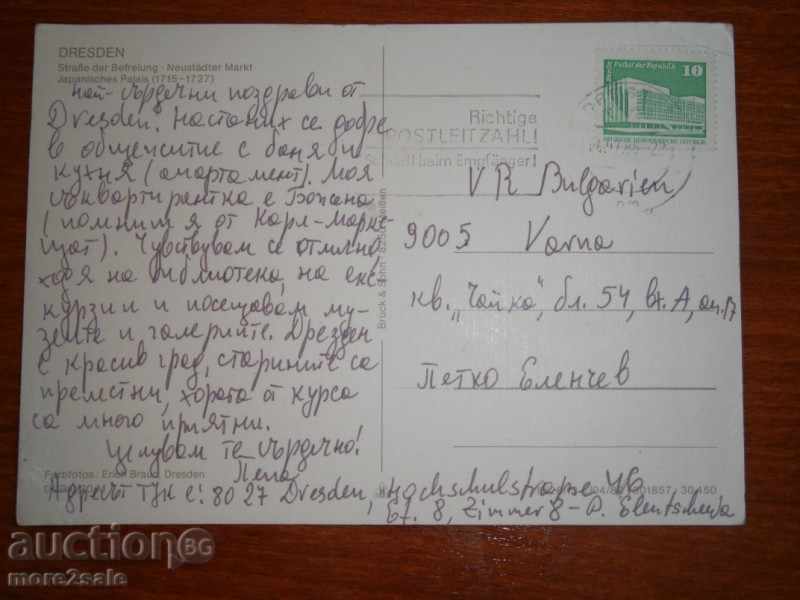 DRESDEN
Straße der Befreiung · Neustädter Markt
Japanisches Palais (1715-1727)
най-сърдечни поздрави от
Dresden. Настаних се добре
в общежитие с баня и
кухня (апартамент). Моя
съквартирантка е Божана
(помниш я от Карл-Маркс-
щат). Чувствувам се отлично,
ходя на библиотека, на екс-
курзии и посещавам му-
зеите и галериите. Дрезден
е красив град, старините са
прелестни, хората от курса
са много приятни.
Целувам те сърдечно!
Пепа
Farbfotos: Erich Braun, Dresden
Адресът тук е: 80 27 Dresden, Hochschulstrasse 46
Et. 8, Zimmer 8 - P. Elentscheva
Bruck & Sohn
Richtige
POSTLEITZAHL!
beim Empfänger!
10
Palast der Republik
VR Bulgarien
9005 Varna
кв. „Чайка", бл. 54, вх. А, ап. 17
Петко Еленчев
30 150
auctionBG
more2sale